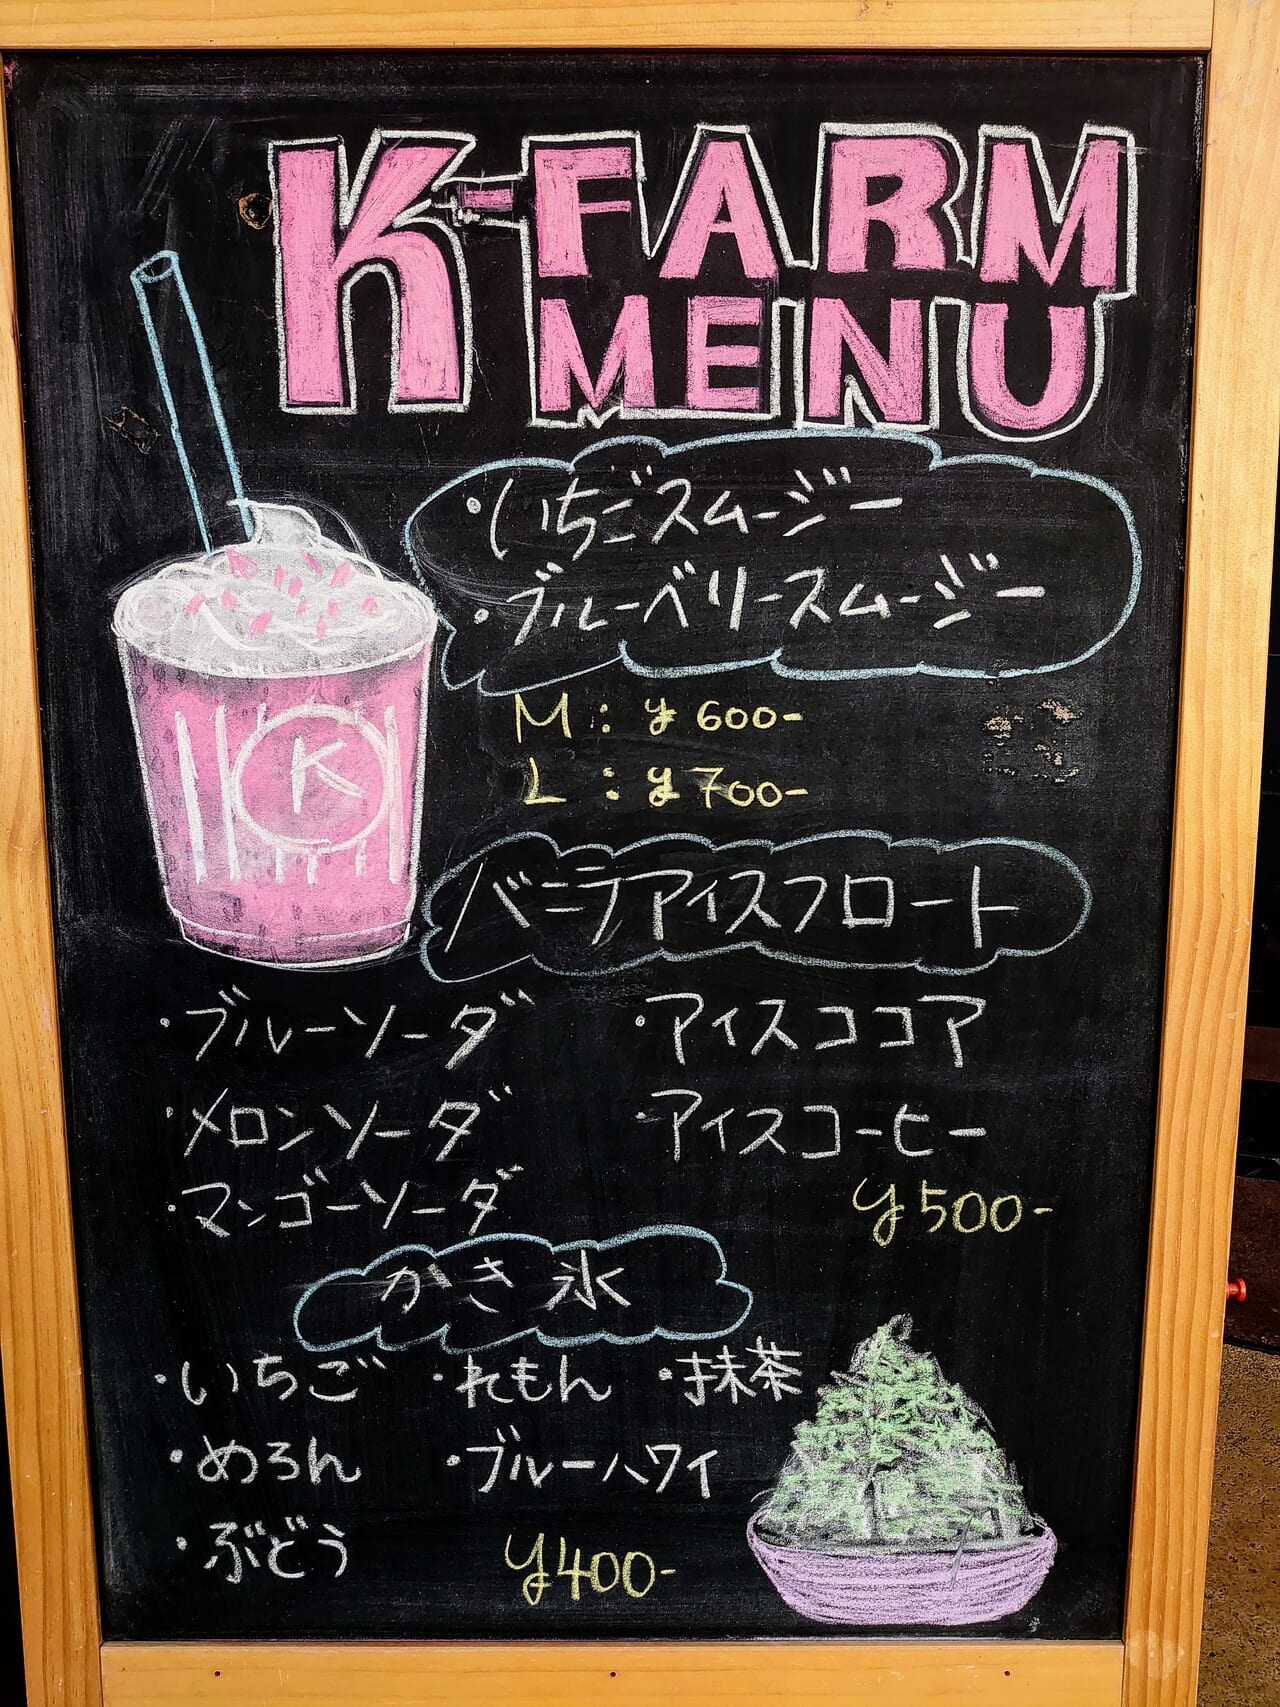 K-FARM
MENU
・いちごスムージー
・ブルーベリースムージー
M : ¥600-
L : ¥700-
K
バニラアイスフロート
・ブルーソーダ ・アイスココア
・メロンソーダ ・アイスコーヒー
・マンゴーソーダ ¥500-
かき氷
・いちご ・れもん ・抹茶
・めろん ・ブルーハワイ
・ぶどう ¥400-